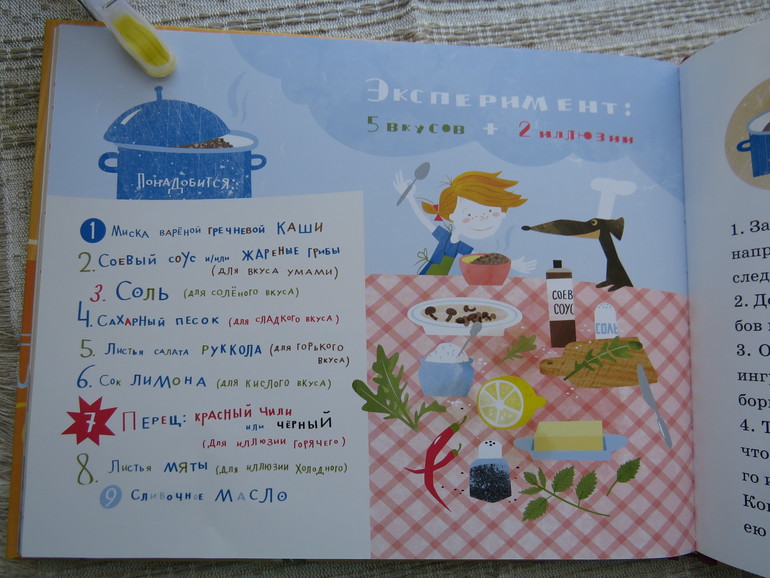 Эксперимент:
5 вкусов + 2 иллюзии
Понадобится:
1 Миска варёной гречневой каши
2. Соевый соус и/или жареные грибы
(для вкуса умами)
3. Соль (для солёного вкуса)
4. Сахарный песок (для сладкого вкуса)
5. Листья салата руккола (для горького
вкуса)
6. Сок лимона (для кислого вкуса)
7 Перец: красный чили
или чёрный
(для иллюзии горячего)
8. Листья мяты (для иллюзии холодного)
9 Сливочное масло
СОЕВ
СОУС
СОЛЬ
1. За
напр
след
2. До
бов и
3. О
ингу
бор
4. Т
что
го и
Ко
ею